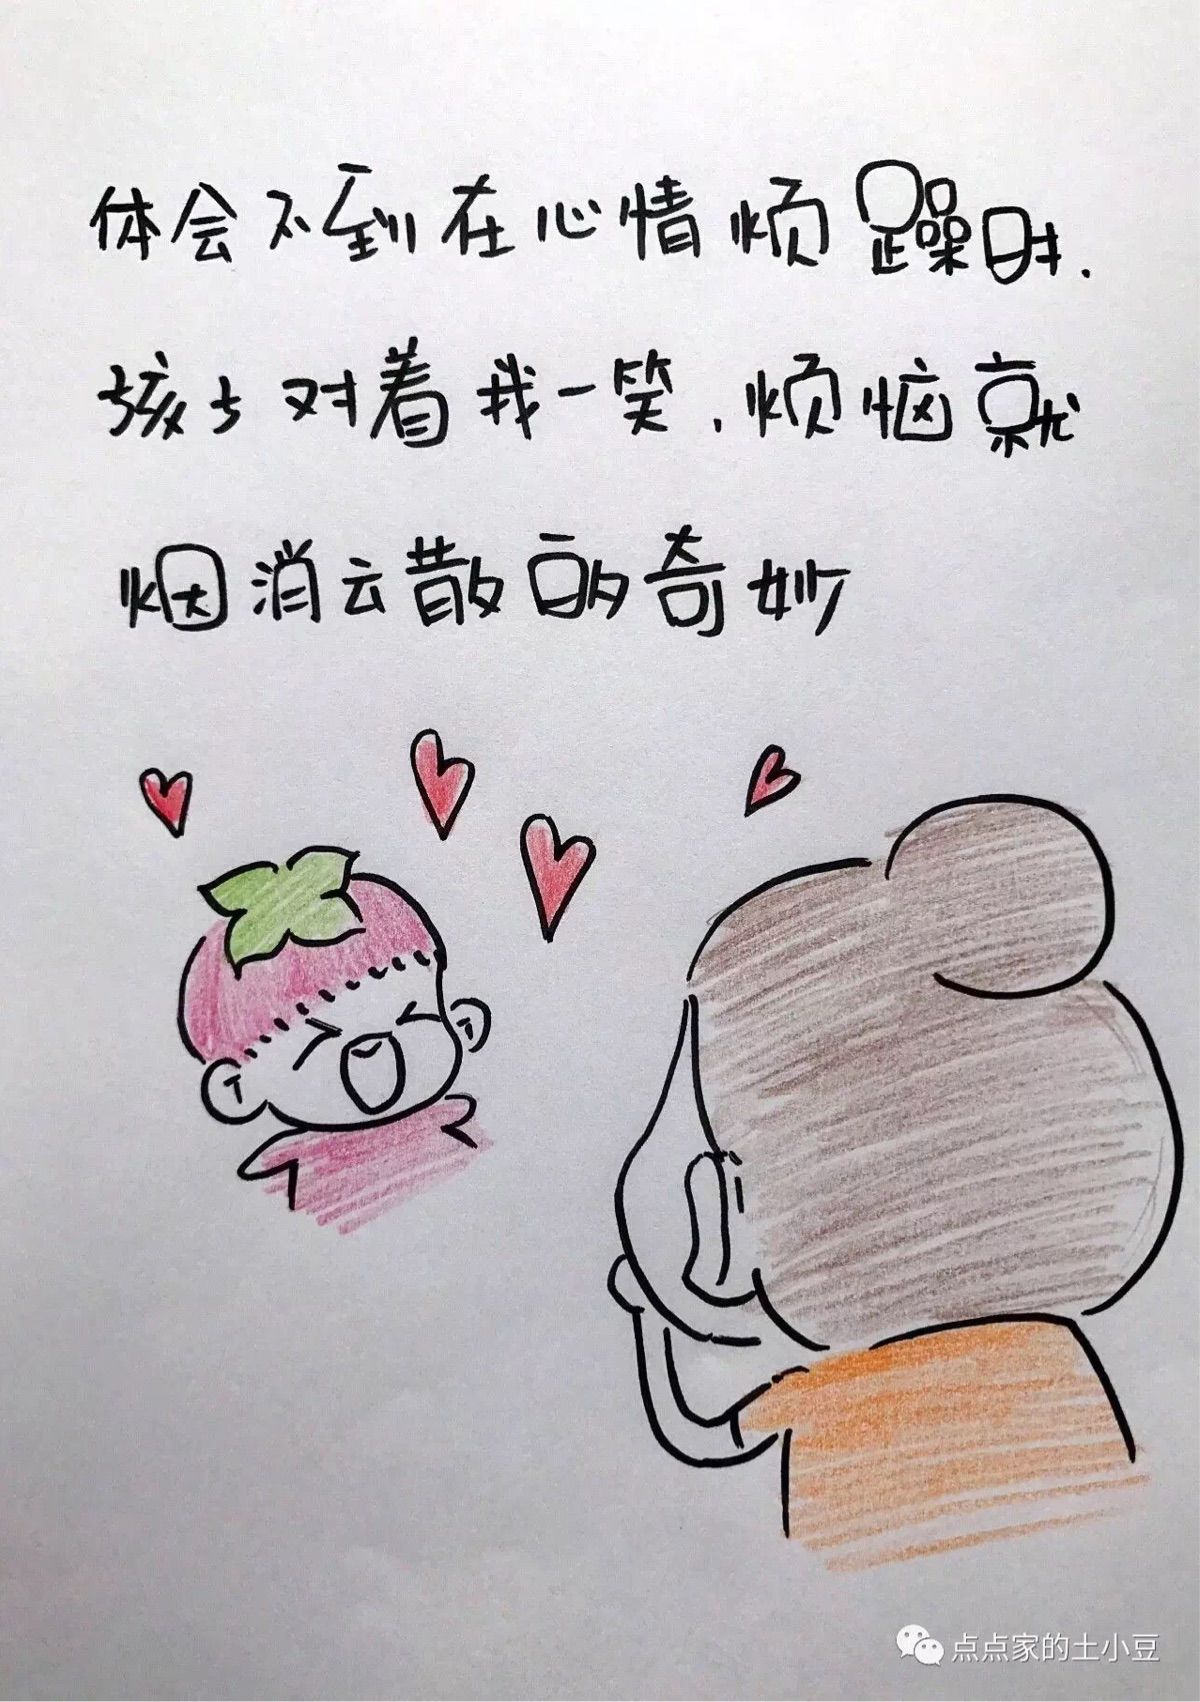 体会不到在心情烦躁时,
孩子对着我一笑,烦恼就
烟消云散的奇妙
点点家的土小豆